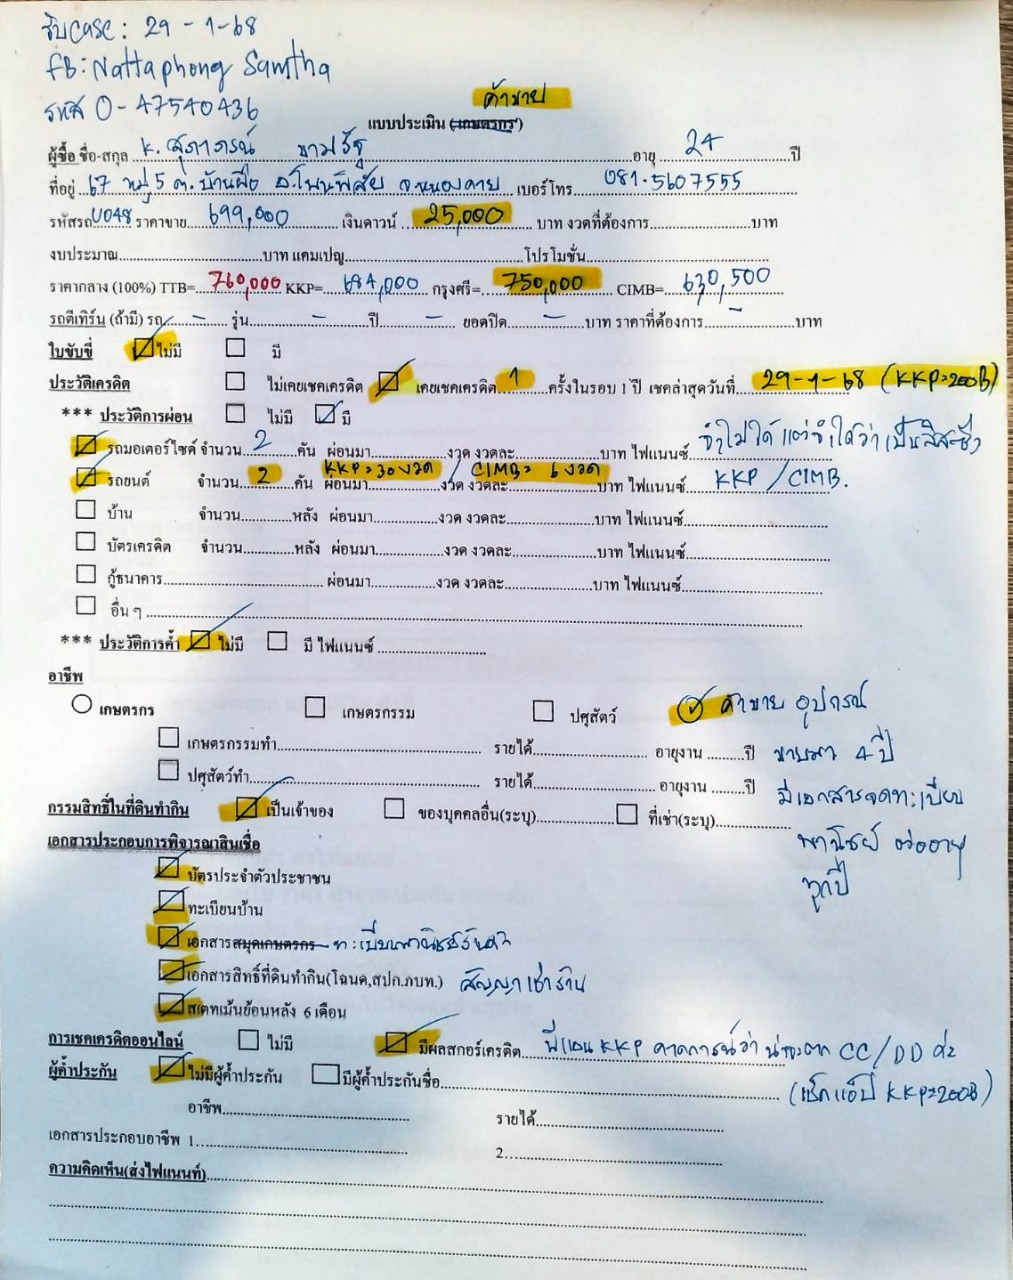 รับcase: 29-1-68
fB: Nattaphong Samtha
รหัส 0-47540436
ค้าขาย
แบบประเมิน (เกษตรกร)
ผู้ซื้อ ชื่อ-สกุล K. สุภาภรณ์ ขามรัฐ อายุ 24 ปี
ที่อยู่ 67 หมู่ 5 ต.บ้านผือ อ.โพนพิสัย จ.หนองคาย เบอร์โทร 081-5607555
รหัสรถ U048 ราคาขาย 699,000 เงินดาวน์ 25,000 บาท งวดที่ต้องการ บาท
งบประมาณ บาท แคมเปญ โปรโมชั่น
ราคากลาง (100%) TTB= 760,000 KKP= 684,000 กรุงศรี= 750,000 CIMB= 630,500
รถตีเทิร์น (ถ้ามี) รถ - รุ่น - ปี - ยอดปิด - บาท ราคาที่ต้องการ - บาท
ใบขับขี่ ไม่มี มี
ประวัติเครดิต ไม่เคยเชคเครดิต เคยเชคเครดิต 1 ครั้งในรอบ 1 ปี เชคล่าสุดวันที่ 29-1-68 (KKP=200B)
*** ประวัติการผ่อน ไม่มี มี
รถมอเตอร์ไซค์ จำนวน 2 คัน ผ่อนมา งวด งวดละ บาท ไฟแนนซ์ จำไม่ได้ แต่จำได้ว่าเป็นลิสซิ่ง
รถยนต์ จำนวน 2 คัน ผ่อนมา KKP=30งวด / CIMB= 6งวด งวด งวดละ บาท ไฟแนนซ์ KKP / CIMB.
บ้าน จำนวน หลัง ผ่อนมา งวด งวดละ บาท ไฟแนนซ์
บัตรเครดิต จำนวน หลัง ผ่อนมา งวด งวดละ บาท ไฟแนนซ์
กู้ธนาคาร ผ่อนมา งวด งวดละ บาท ไฟแนนซ์
อื่น ๆ
*** ประวัติการค้ำ ไม่มี มี ไฟแนนซ์
อาชีพ
เกษตรกร เกษตรกรรม ปศุสัตว์ ค้าขาย อุปกรณ์
เกษตรกรรมทำ รายได้ อายุงาน ปี ขายมา 4 ปี
ปศุสัตว์ทำ รายได้ อายุงาน ปี มีเอกสารจดทะเบียน
กรรมสิทธิ์ในที่ดินทำกิน เป็นเจ้าของ ของบุคคลอื่น(ระบุ) ที่เช่า(ระบุ)
พาณิชย์ ต่ออายุ
เอกสารประกอบการพิจารณาสินเชื่อ
ทุกปี
บัตรประจำตัวประชาชน
ทะเบียนบ้าน
เอกสารสมุดเกษตรกร ทะเบียนพาณิชย์ร้านค้า
เอกสารสิทธิ์ที่ดินทำกิน(โฉนด,สปก.ภบท.) สัญญาเช่าร้าน
สเตทเม้นย้อนหลัง 6 เดือน
การเชคเครดิตออนไลน์ ไม่มี มีผลสกอร์เครดิต พี่แอน KKP คาดการณ์ว่า น่าจะตก CC/DD ค่ะ
ผู้ค้ำประกัน ไม่มีผู้ค้ำประกัน มีผู้ค้ำประกันชื่อ (เช็กแอ็ปปี KKP=200B)
อาชีพ รายได้
เอกสารประกอบอาชีพ 1. 2.
ความคิดเห็น(ส่งไฟแนนท์)